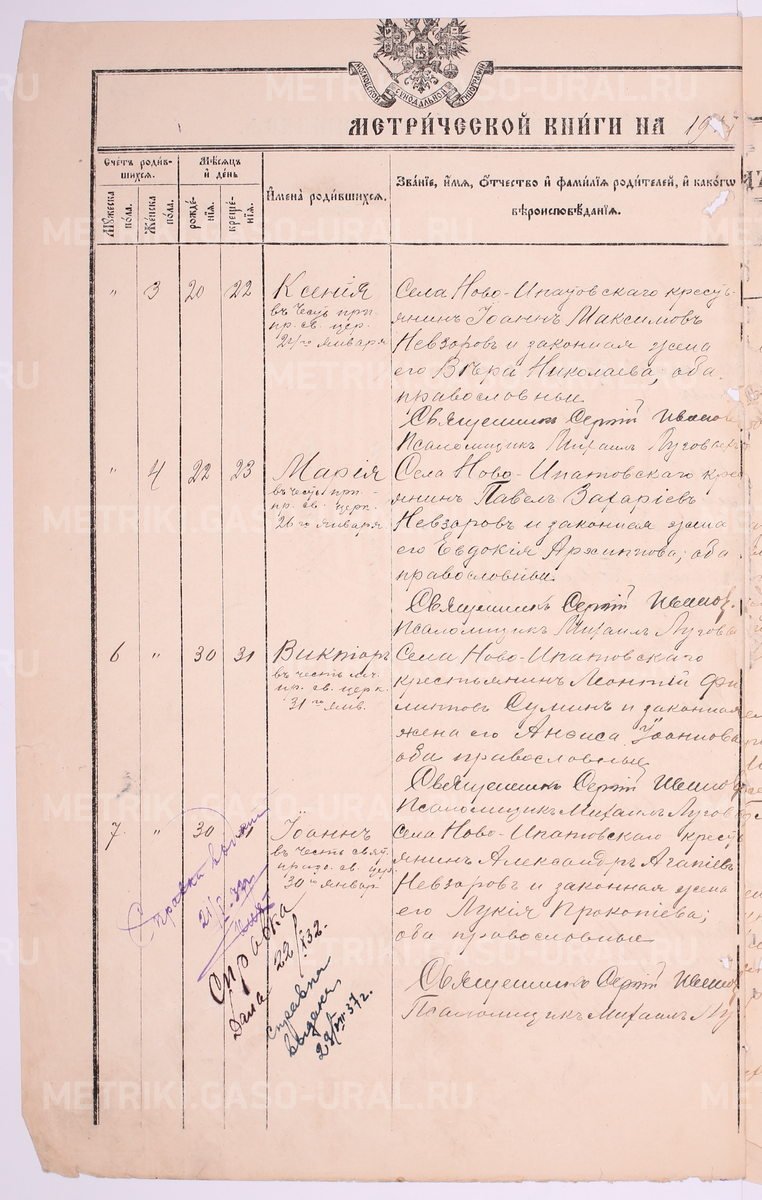 МОСКОВСКОЙ СѴНОДАЛЬНОЙ ТИПОГРАФІИ
МЕТРИ́ЧЕСКОЙ КНИ́ГИ НА 19
Счетъ роди́в-
шихся.
Мѣсяцъ
и́ день
И҆мена̀ роди́вшихся.
Зва́ніе, и҆́мя, ѻ҆́тчество и҆ фами́лїѧ роди́телей, и҆ како́гѡ
вѣроисповѣ́данїѧ.
Мꙋжеска
по́ла.
Же́нска
по́ла.
рожде́-
нїѧ.
креще́-
нїѧ.
" 3 20 22 Ксенія
въ честь прп.
пр. св. цер.
24го января
Села Ново-Ипатовскаго кресть-
янинъ Іоаннъ Максимовъ
Невзоровъ и законная жена
его Вѣра Николаева, оба
православные
Священникъ Сергій Иванов
Псаломщикъ Михаилъ Луговы
" 4 22 23 Марія
въ честь прп.
пр. св. церк.
26го января
Села Ново-Ипатовскаго кре
янинъ Павелъ Захаріевъ
Невзоровъ и законная жена
его Евдокія Архиппова; оба
православные.
Священникъ Сергій Иванов.
Псаломщикъ Михаилъ Лугов
6 " 30 31 Викторъ
въ честь мч.
пр. св. церк.
31го янв.
Села Ново-Ипатовскаго
крестьянинъ Леонтій Фи
липповъ Суминъ и законная
жена его Анѳиса Іоаннова
оба православные
Священникъ Сергій Иванов
Псаломщикъ Михаилъ Лугов
7 " 30 Іоаннъ
въ честь свят.
св. цер.
30го январ
Села Ново-Ипатовскаго кресть
янинъ Александръ Агапіевъ
Невзоровъ и законная жена
его Лукія Прокопіева;
оба православные
Священникъ Сергій Иванов
Псаломщикъ Михаилъ Лу
Справка
Справка
Дана 22/X32.
справка
выдана
23/VII 37 г.
METRIKI.GASO-URAL.RU